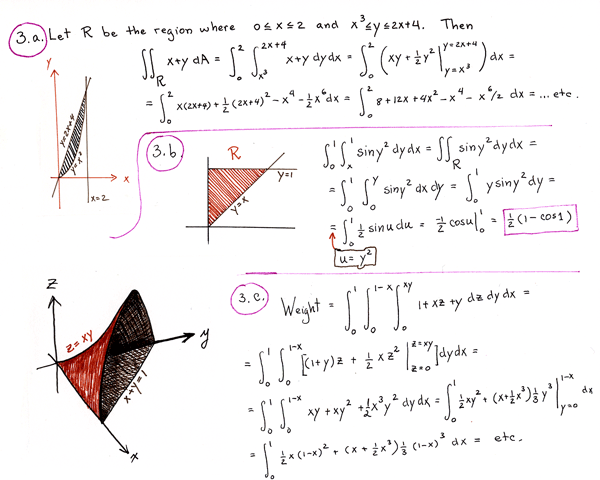 3.a. Let R be the region where 0≤x≤2 and x³≤y≤2x+4. Then
∬_R x+y dA = ∫₀² ∫_{x³}^{2x+4} x+y dy dx = ∫₀² (xy + ½y² |_{y=x³}^{y=2x+4}) dx =
= ∫₀² x(2x+4) + ½(2x+4)² − x⁴ − ½x⁶ dx = ∫₀² 8 + 12x + 4x² − x⁴ − x⁶/2 dx = ... etc.
y
y=2x+4
y=x³
x
x=2
3.b.
R
y=1
y=x
∫₀¹ ∫ₓ¹ sin y² dy dx = ∬_R sin y² dy dx =
= ∫₀¹ ∫₀^y sin y² dx dy = ∫₀¹ y sin y² dy =
= ∫₀¹ ½ sin u du = -½ cos u |₀¹ = ½(1 − cos 1)
u = y²
z
z=xy
y
x+y=1
x
3.c. Weight = ∫₀¹ ∫₀^{1-x} ∫₀^{xy} 1+xz+y dz dy dx =
= ∫₀¹ ∫₀^{1-x} [(1+y)z + ½ x z² |_{z=0}^{z=xy}] dy dx =
= ∫₀¹ ∫₀^{1-x} xy + xy² + ½x³y² dy dx = ∫₀¹ ½xy² + (x+½x³)⅓y³ |_{y=0}^{1-x} dx
= ∫₀¹ ½x(1-x)² + (x + ½x³)⅓(1-x)³ dx = etc.